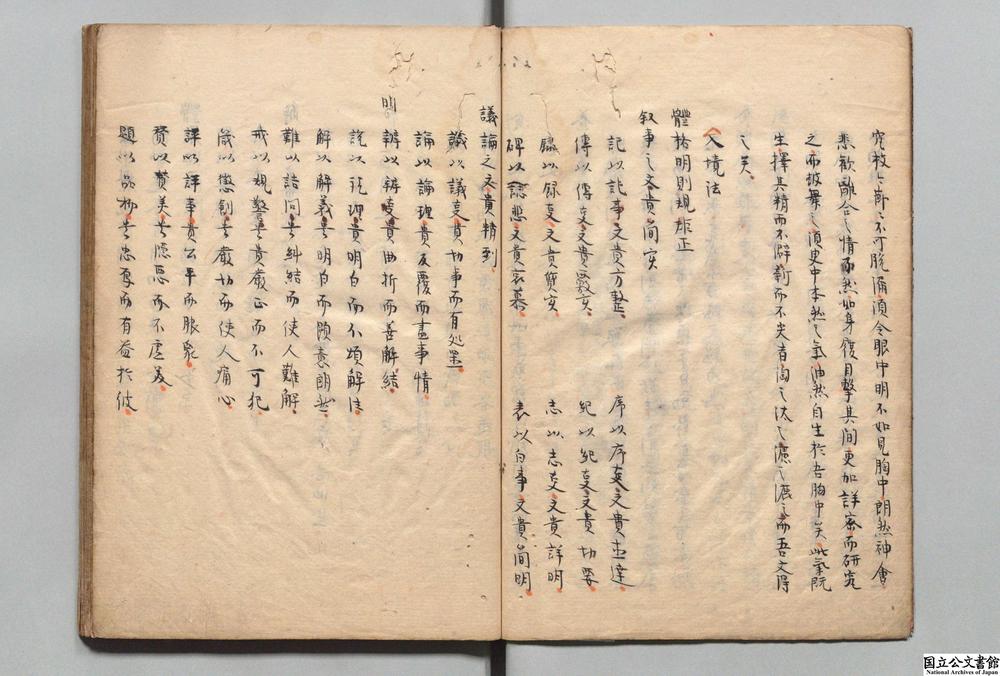 究枚比斬之不可脫漏須令眼中明不如見胸中朗然神會
悲歡離合之情而然如身履目擊其間更加詳密而研究
之而鼓舞之須臾中本然之氣油然自生於吾胸中矣此氣既
生擇其精而不碎斬而不尖者陶之汰之漉之漉之而吾文得
之矣
入境法
體格明則規矩正
叙事之文貴簡実
記以記事文貴方整 序以序事文貴条達
傳以傳事文貴覈実 紀以紀事文貴切要
錄以錄事文貴質実 志以志事文貴詳明
碑以誌悲文貴哀慕 表以白事文貴簡明
議論之文貴精到
議以議事貴切事而有処置
論以論理貴反覆而盡事情
辨以辨疑貴曲折而善解結
明
說以說理貴明白而不煩解注
解以解義貴明白而頤意朗然
難以詰問貴糾結而使人難解
戒以規警貴嚴正而不可犯
箴以懲創貴嚴切而使人痛心
評以評事貴公平而服衆
賛以賛美貴隱惡而不虛美
題以品物貴忠厚而有益於彼
国立公文書館
National Archives of Japan